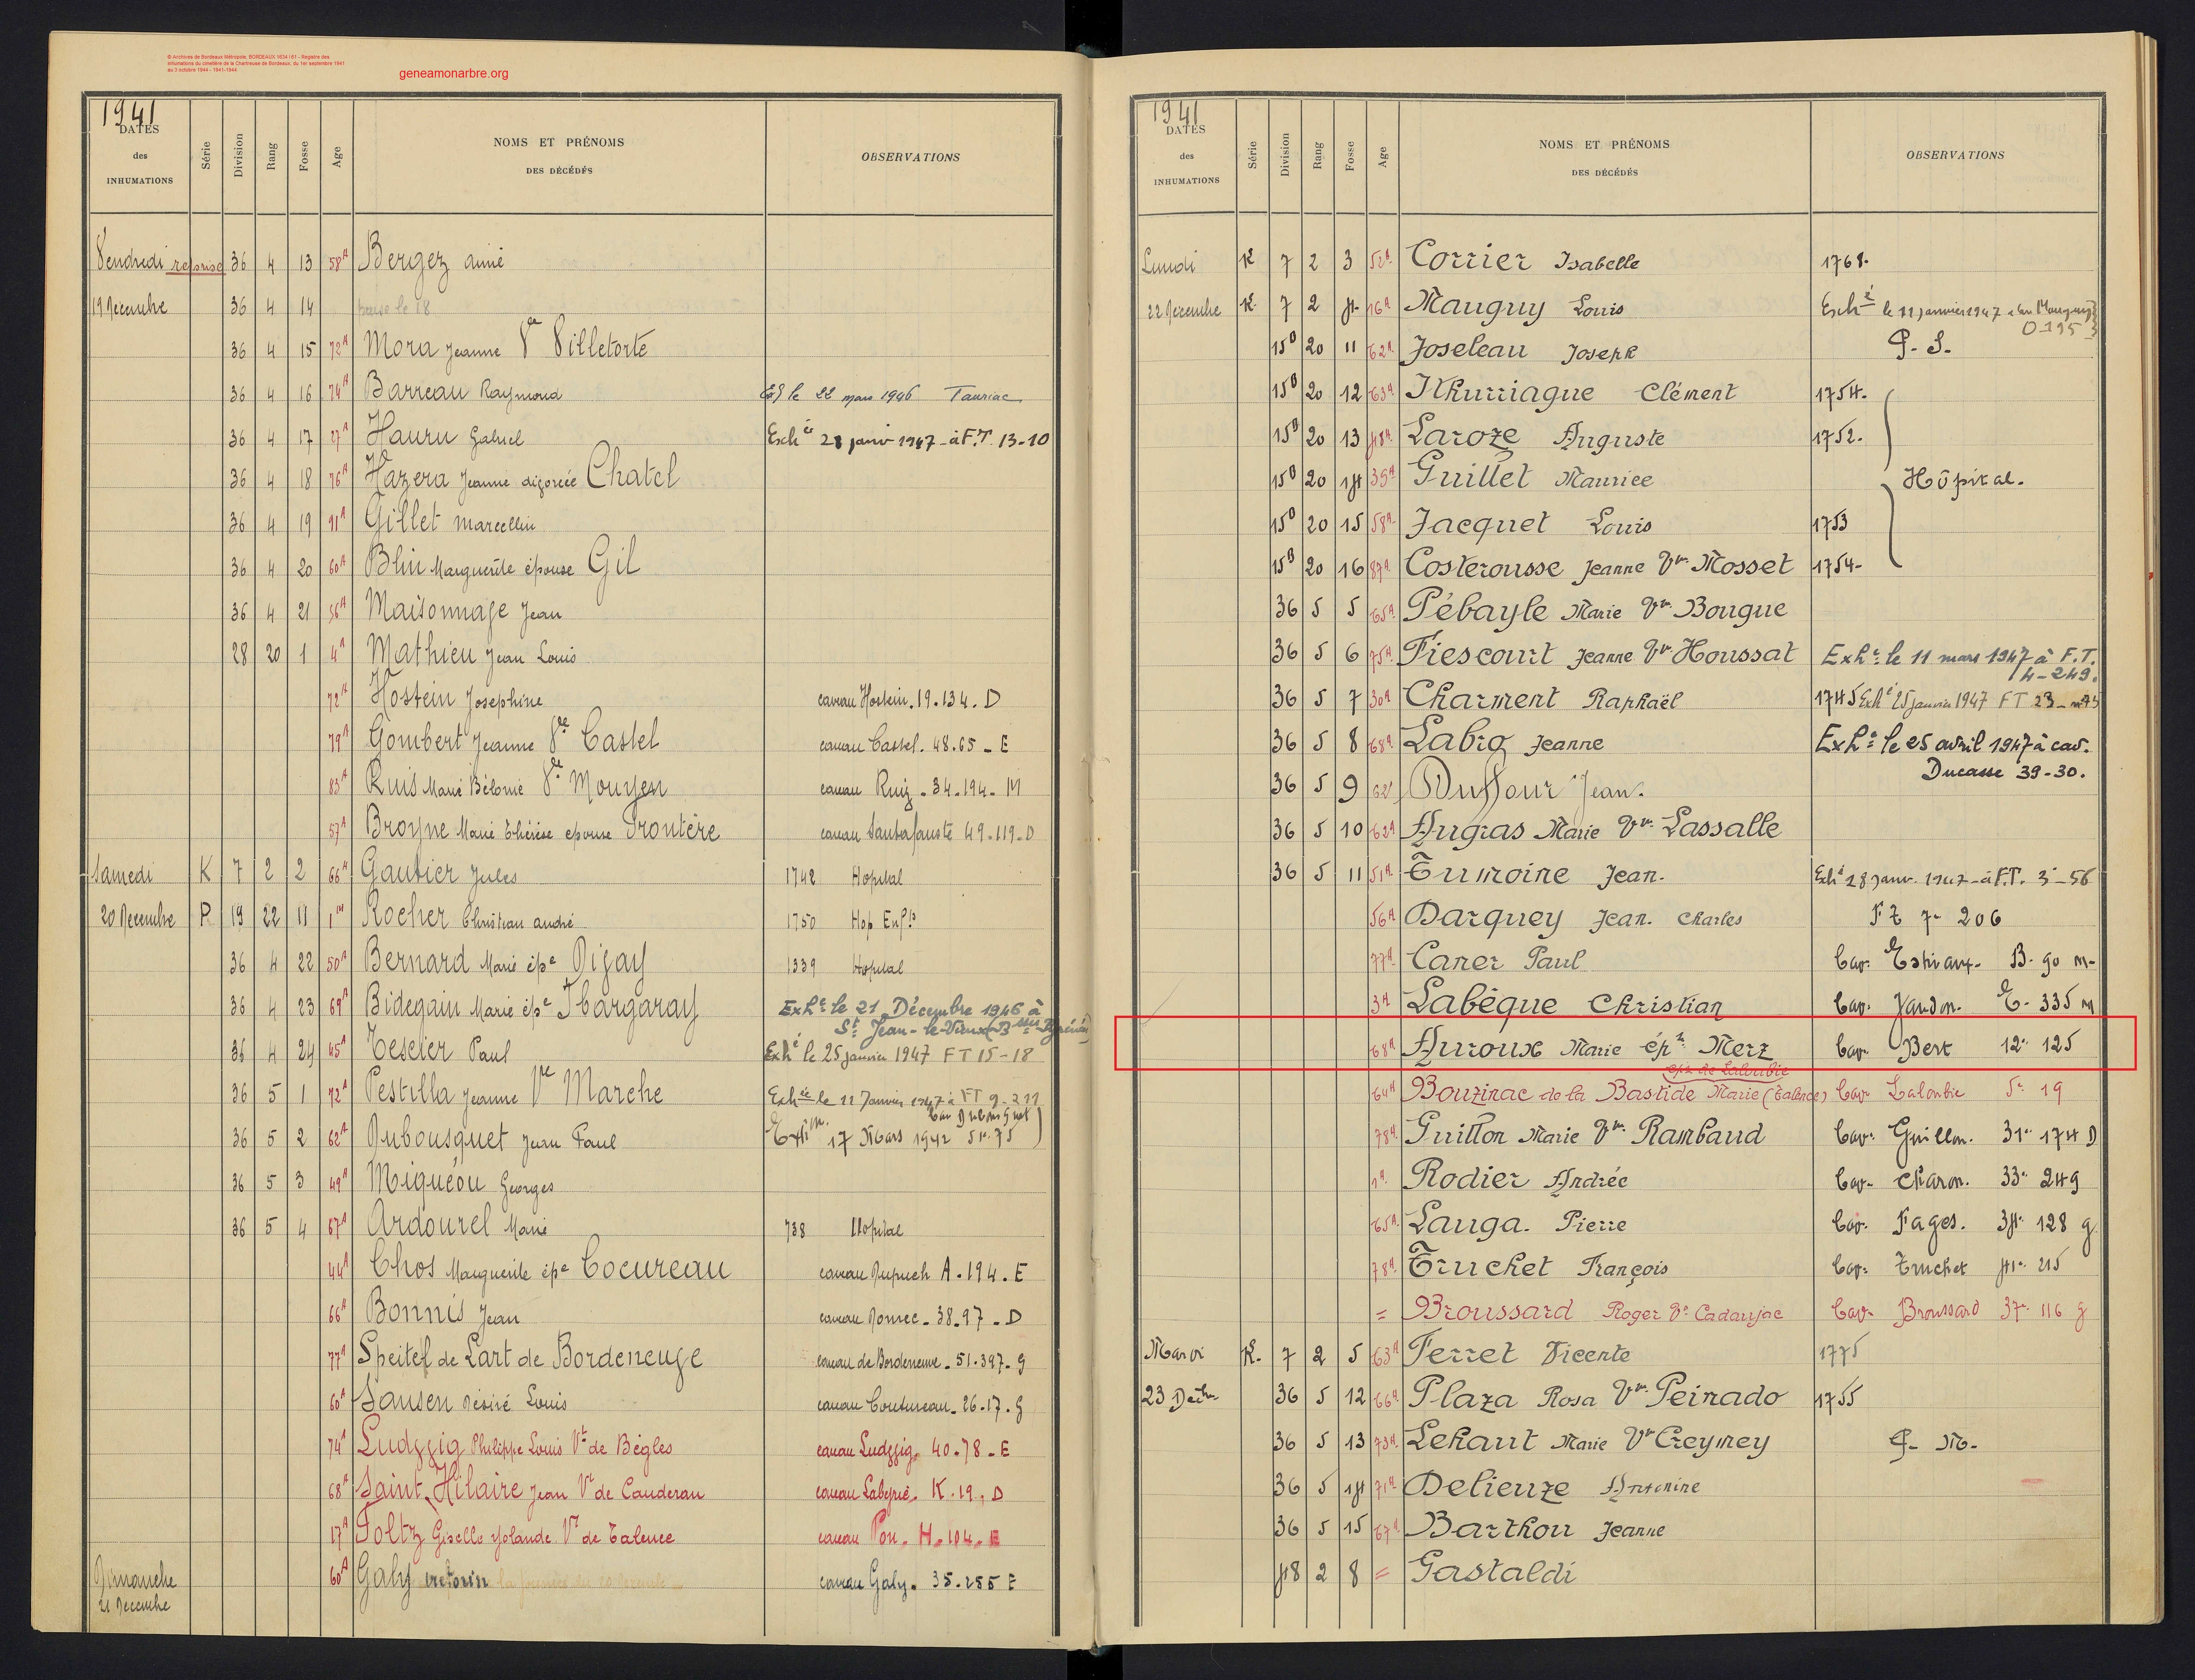 © Archives de Bordeaux Métropole, BORDEAUX 1634 I 61 - Registre des
inhumations du cimetière de la Chartreuse de Bordeaux, du 1er septembre 1941
au 3 octobre 1944 - 1941-1944
geneamonarbre.org
1941
DATES des INHUMATIONS Série Division Rang Fosse Age NOMS ET PRÉNOMS DES DÉCÉDÉS OBSERVATIONS
Vendredi reprise 36 4 13 58A Bergez aimé
19 Decembre 36 4 14
36 4 15 72A Mora Jeanne Vve Villetorte
36 4 16 74A Barreau Raymond le 22 mars 1946 Tauriac
36 4 17 27A Hauru Gabriel Exhée 28 janv 1947 - à F.T. 13-10
36 4 18 76A Hazera Jeanne divorcée Chatel
36 4 19 91A Gillet Marcellin
36 4 20 60A Blin Marguerite épouse Gil
36 4 21 56A Maisonnave Jean
28 20 1 4A Mathieu Jean Louis
72A Hostein Josephine caveau Hostein. 19. 134. D
79A Gombert Jeanne Vve Castel caveau Castel. 48.65 - E
83A Ruis Marie Vve Mouyen caveau Ruiz. 34.194. M
57A Broyne Marie Thérèse épouse Frontère caveau 49.119.D
Samedi K 7 2 2 66A Gautier Jules 1742 Hopital
20 Decembre R 19 22 11 1M Rocher Christian andré 1750 Hop Enfts
36 4 22 50A Bernard Marie épe Digay 1339 Hopital
36 4 23 69A Bidegain Marie épe Ibargaray Exhé le 21 Décembre 1946 à
St Jean-le-Vieux (Bsses Pyrénées)
36 4 24 45A Tescier Paul Exhé le 25 janvier 1947 FT 15-18
36 5 1 72A Pestilla Jeanne Vve Marche Exhée le 11 Janvier 1947 à FT 9-211
36 5 2 62A Dubousquet Jean Paul Exhm. 17 Mars 1942 Cav Dubousquet 51.75
36 5 3 49A Miquéou Georges
36 5 4 67A Ardourel Marie 738 Hopital
44A Chos Marguerite épe Cocureau caveau Dupuch A.194.E
66A Bonnis Jean caveau 38.97 - D
77A Speitel de Lart de Bordeneuve caveau de Bordeneuve. 51.397. g
60A Sansen Désiré Louis caveau Coutureau. 26.17. g
74A Ludwig Philippe Louis Vt de Bègles caveau Ludwig. 40.78 - E
68A Saint Hilaire Jean Vt de Cauderan caveau Labeyrie. K.19. D
17A Foltz Giselle Yolande Vt de Talence caveau Pon. H. 104. E
Dimanche 60A Galy victorin caveau Galy. 35.255 E
21 Decembre
1941
DATES des INHUMATIONS Série Division Rang Fosse Age NOMS ET PRÉNOMS DES DÉCÉDÉS OBSERVATIONS
Lundi K 7 2 3 52A Corrier Isabelle 1768.
22 Decembre K 7 2 4 16A Mauguy Louis Exhé le 11 janvier 1947 Cav Mauguy
O 195
15B 20 11 62A Joseleau Joseph P. S.
15B 20 12 63A Ithurriague Clément 1754.
15B 20 13 48A Laroze Auguste 1752.
15B 20 14 35A Guillet Maurice Hôpital.
15B 20 15 58A Jacquet Louis 1753
15B 20 16 87A Costerousse Jeanne Vve Mosset 1754-
36 5 5 65A Pébayle Marie Vve Bougue
36 5 6 75A Fiescourt Jeanne Vve Houssat Exhe le 11 mars 1947 à F.T.
4-249.
36 5 7 30A Charment Raphaël 1745 Exhé 25 janvier 1947 FT 23
36 5 8 68A Labro Jeanne Exhe le 25 avril 1947 à cav.
Ducasse 39-30.
36 5 9 62A Duffour Jean.
36 5 10 62A Augras Marie Vve Lassalle
36 5 11 51A Tumoine Jean. Exhé 18 Janv. 1947 - à F.T. 3-56
56A Darquey Jean. Charles F T 7- 206
77A Caner Paul Cav. B. 90 m-
3A Labèque Christian Cav. Jaudon. E- 335 m
68A Auroux Marie épse Merz Cav. Bert 12- 125
epse de Laloubie
64A Bouzinac de la Bastide Marie (Talence) Cav. Laloubie 5- 19
78A Guillon Marie Vve Rambaud Cav. Guillon. 31- 174 D
1A Rodier Andrée Cav. Charon. 33- 249
65A Lauga. Pierre Cav. Fages. 34- 128 g.
78A Truchet François Cav. Truchet 41- 215
= Broussard Roger Vt Cadaujac Cav. Broussard 37- 116 g
Mardi K. 7 2 5 63A Ferret Vicente 1775
23 Décbre 36 5 12 66A Plaza Rosa Vve Peinado 1755
36 5 13 73A Lehaut Marie Vve Creymey
36 5 14 71A Delieuze Antonine
36 5 15 67A Barthou Jeanne
48 2 8 = Gastaldi